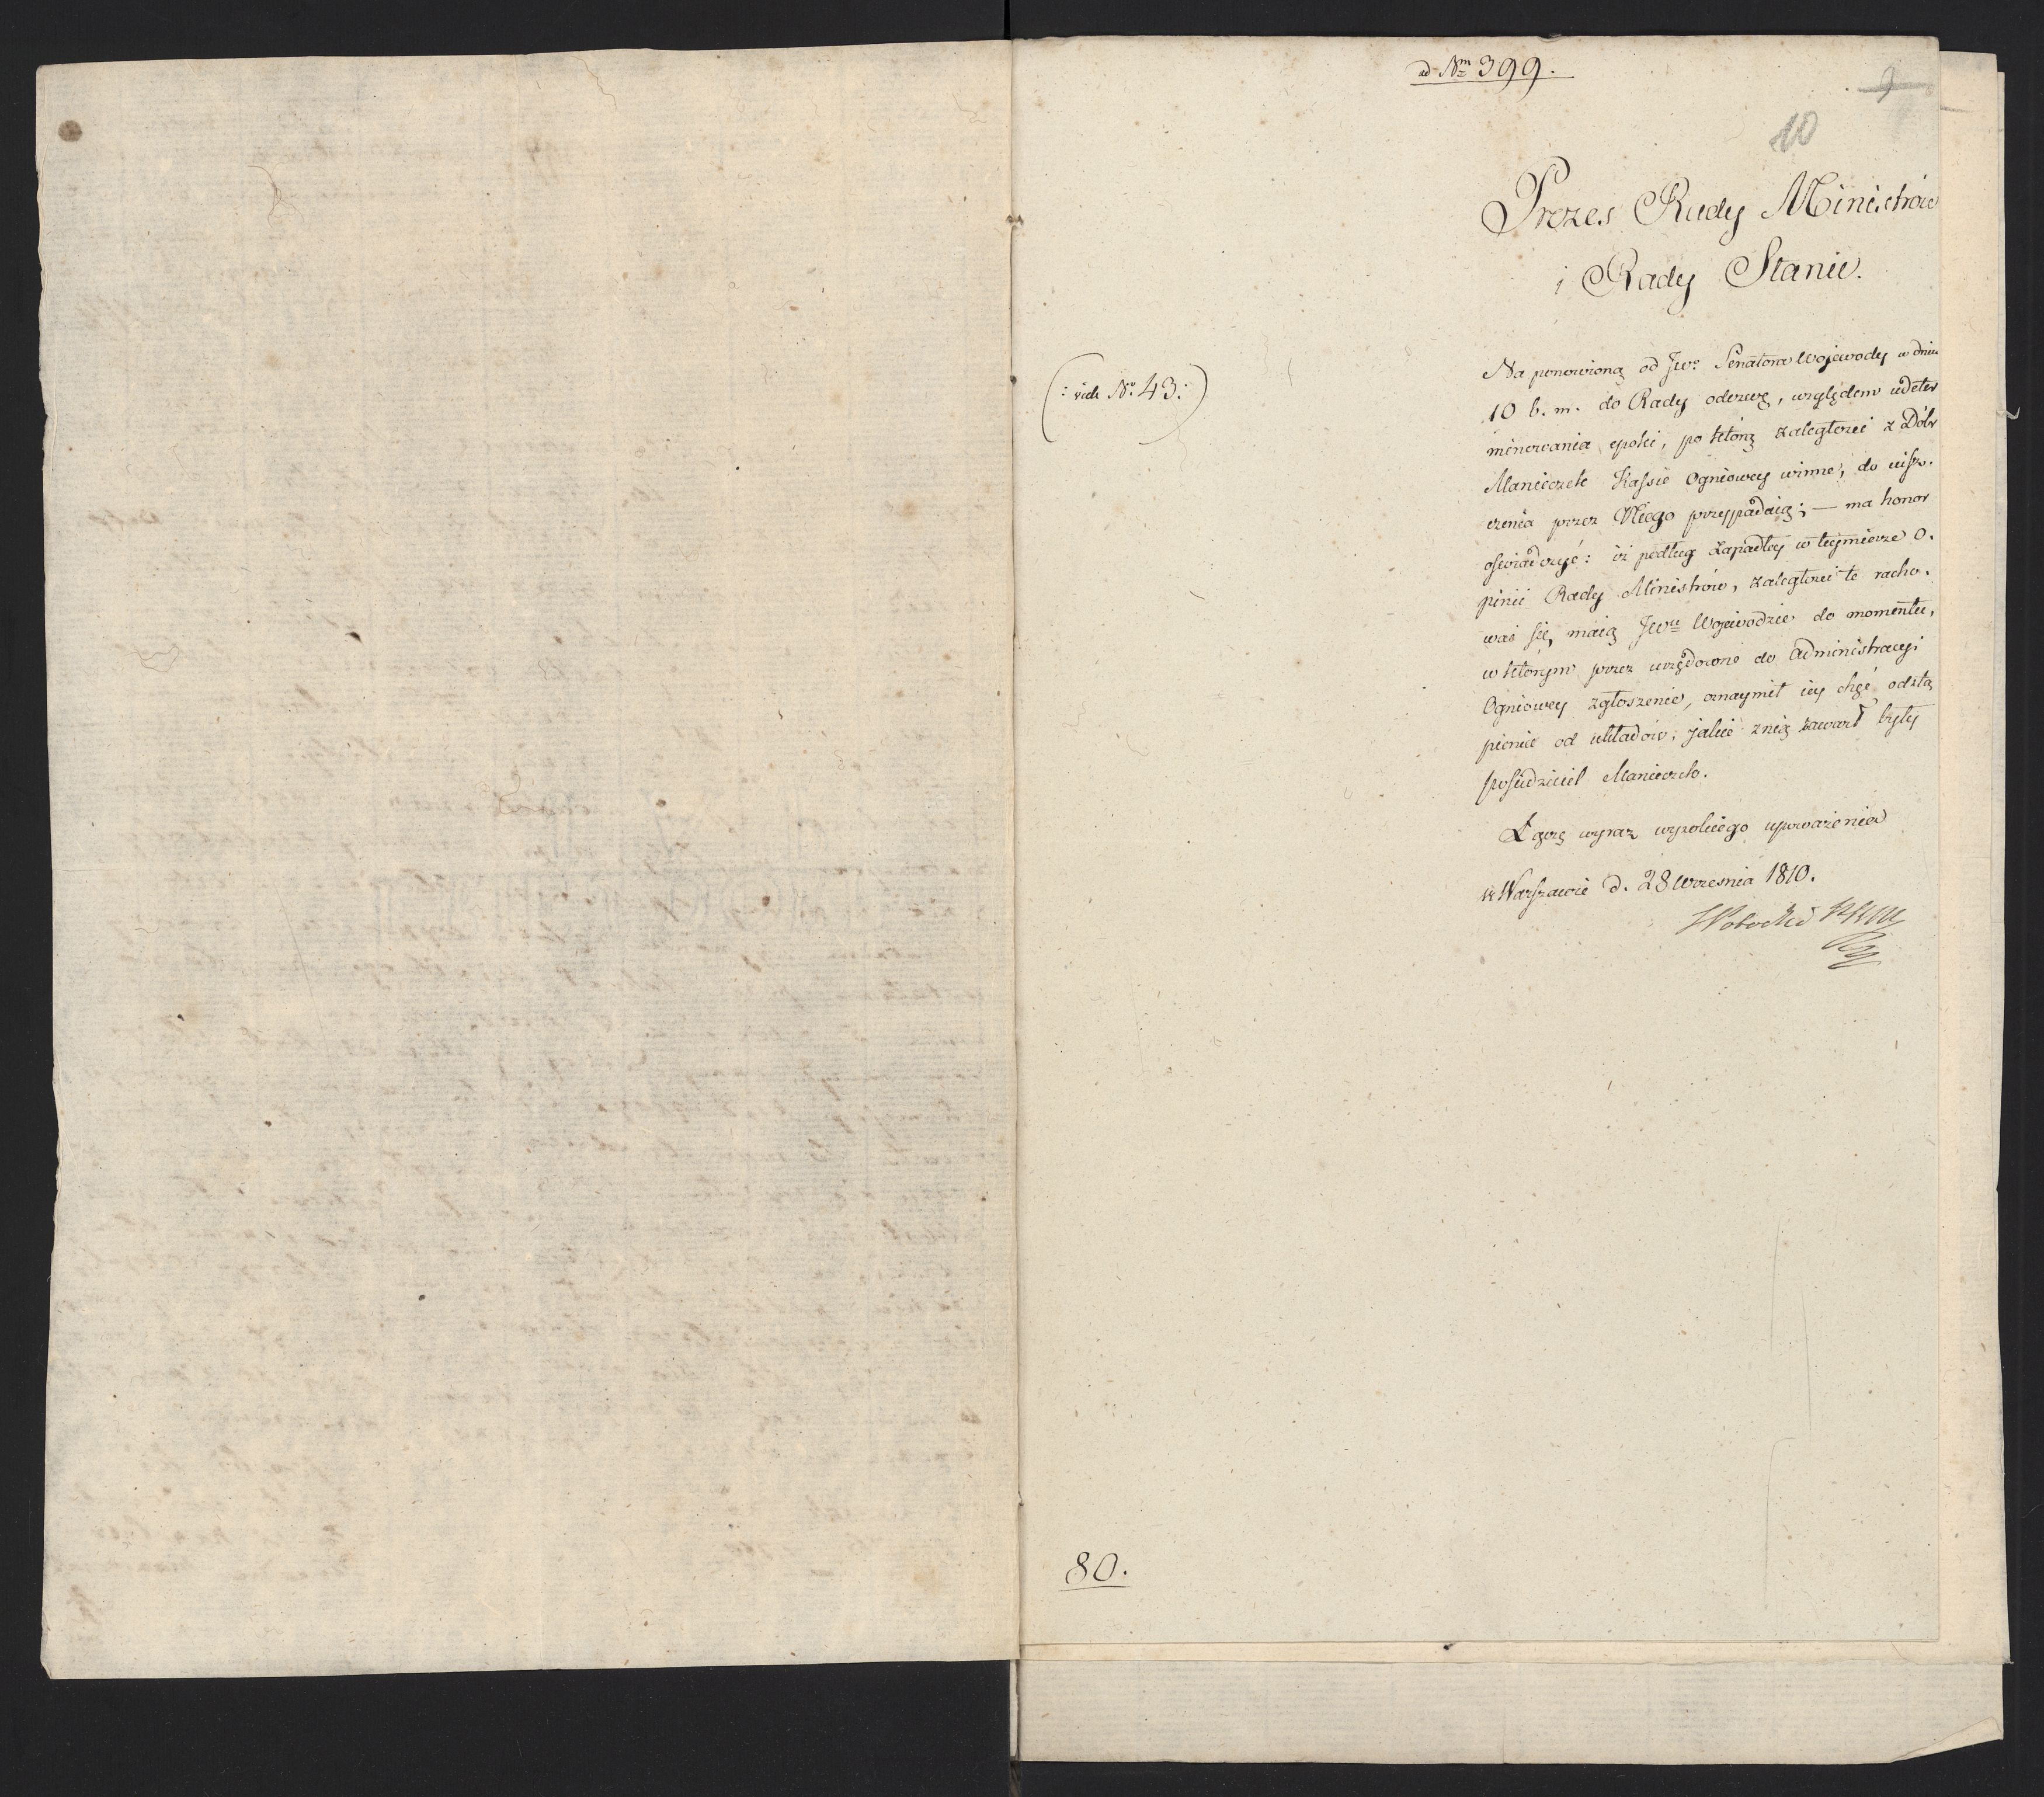 ad Nrm 399.
9
10
Prezes Rady Ministrów
i Rady Stanu.
(: vide No 43:)
Na ponowioną od JWo Senatora Wojewody w dniu
10 b. m. do Rady odezwę, względem udeter
minowania epoki, po którą zaległości z Dóbr
Manieczek Kassie Ogniowey winne, do uisz-
czenia przez Niego przypadaią; — ma honor
oświadczyć: iż podług zapadłey w teymierze O-
pinii Rady Ministrów, zaległości te racho-
wać się maią JWu Wojewodzie do momentu,
w którym przez urzędowne do Administracyi
Ogniowey zgłoszenie, oznaymił iey chęć odstą
pienia od układów, jakie znią zawarł były
possiedziciel Manieczek.
Łączę wyraz wysokiego upoważenia
w Warszawie d. 28 Wrzesnia 1810.
SPotocki
80.